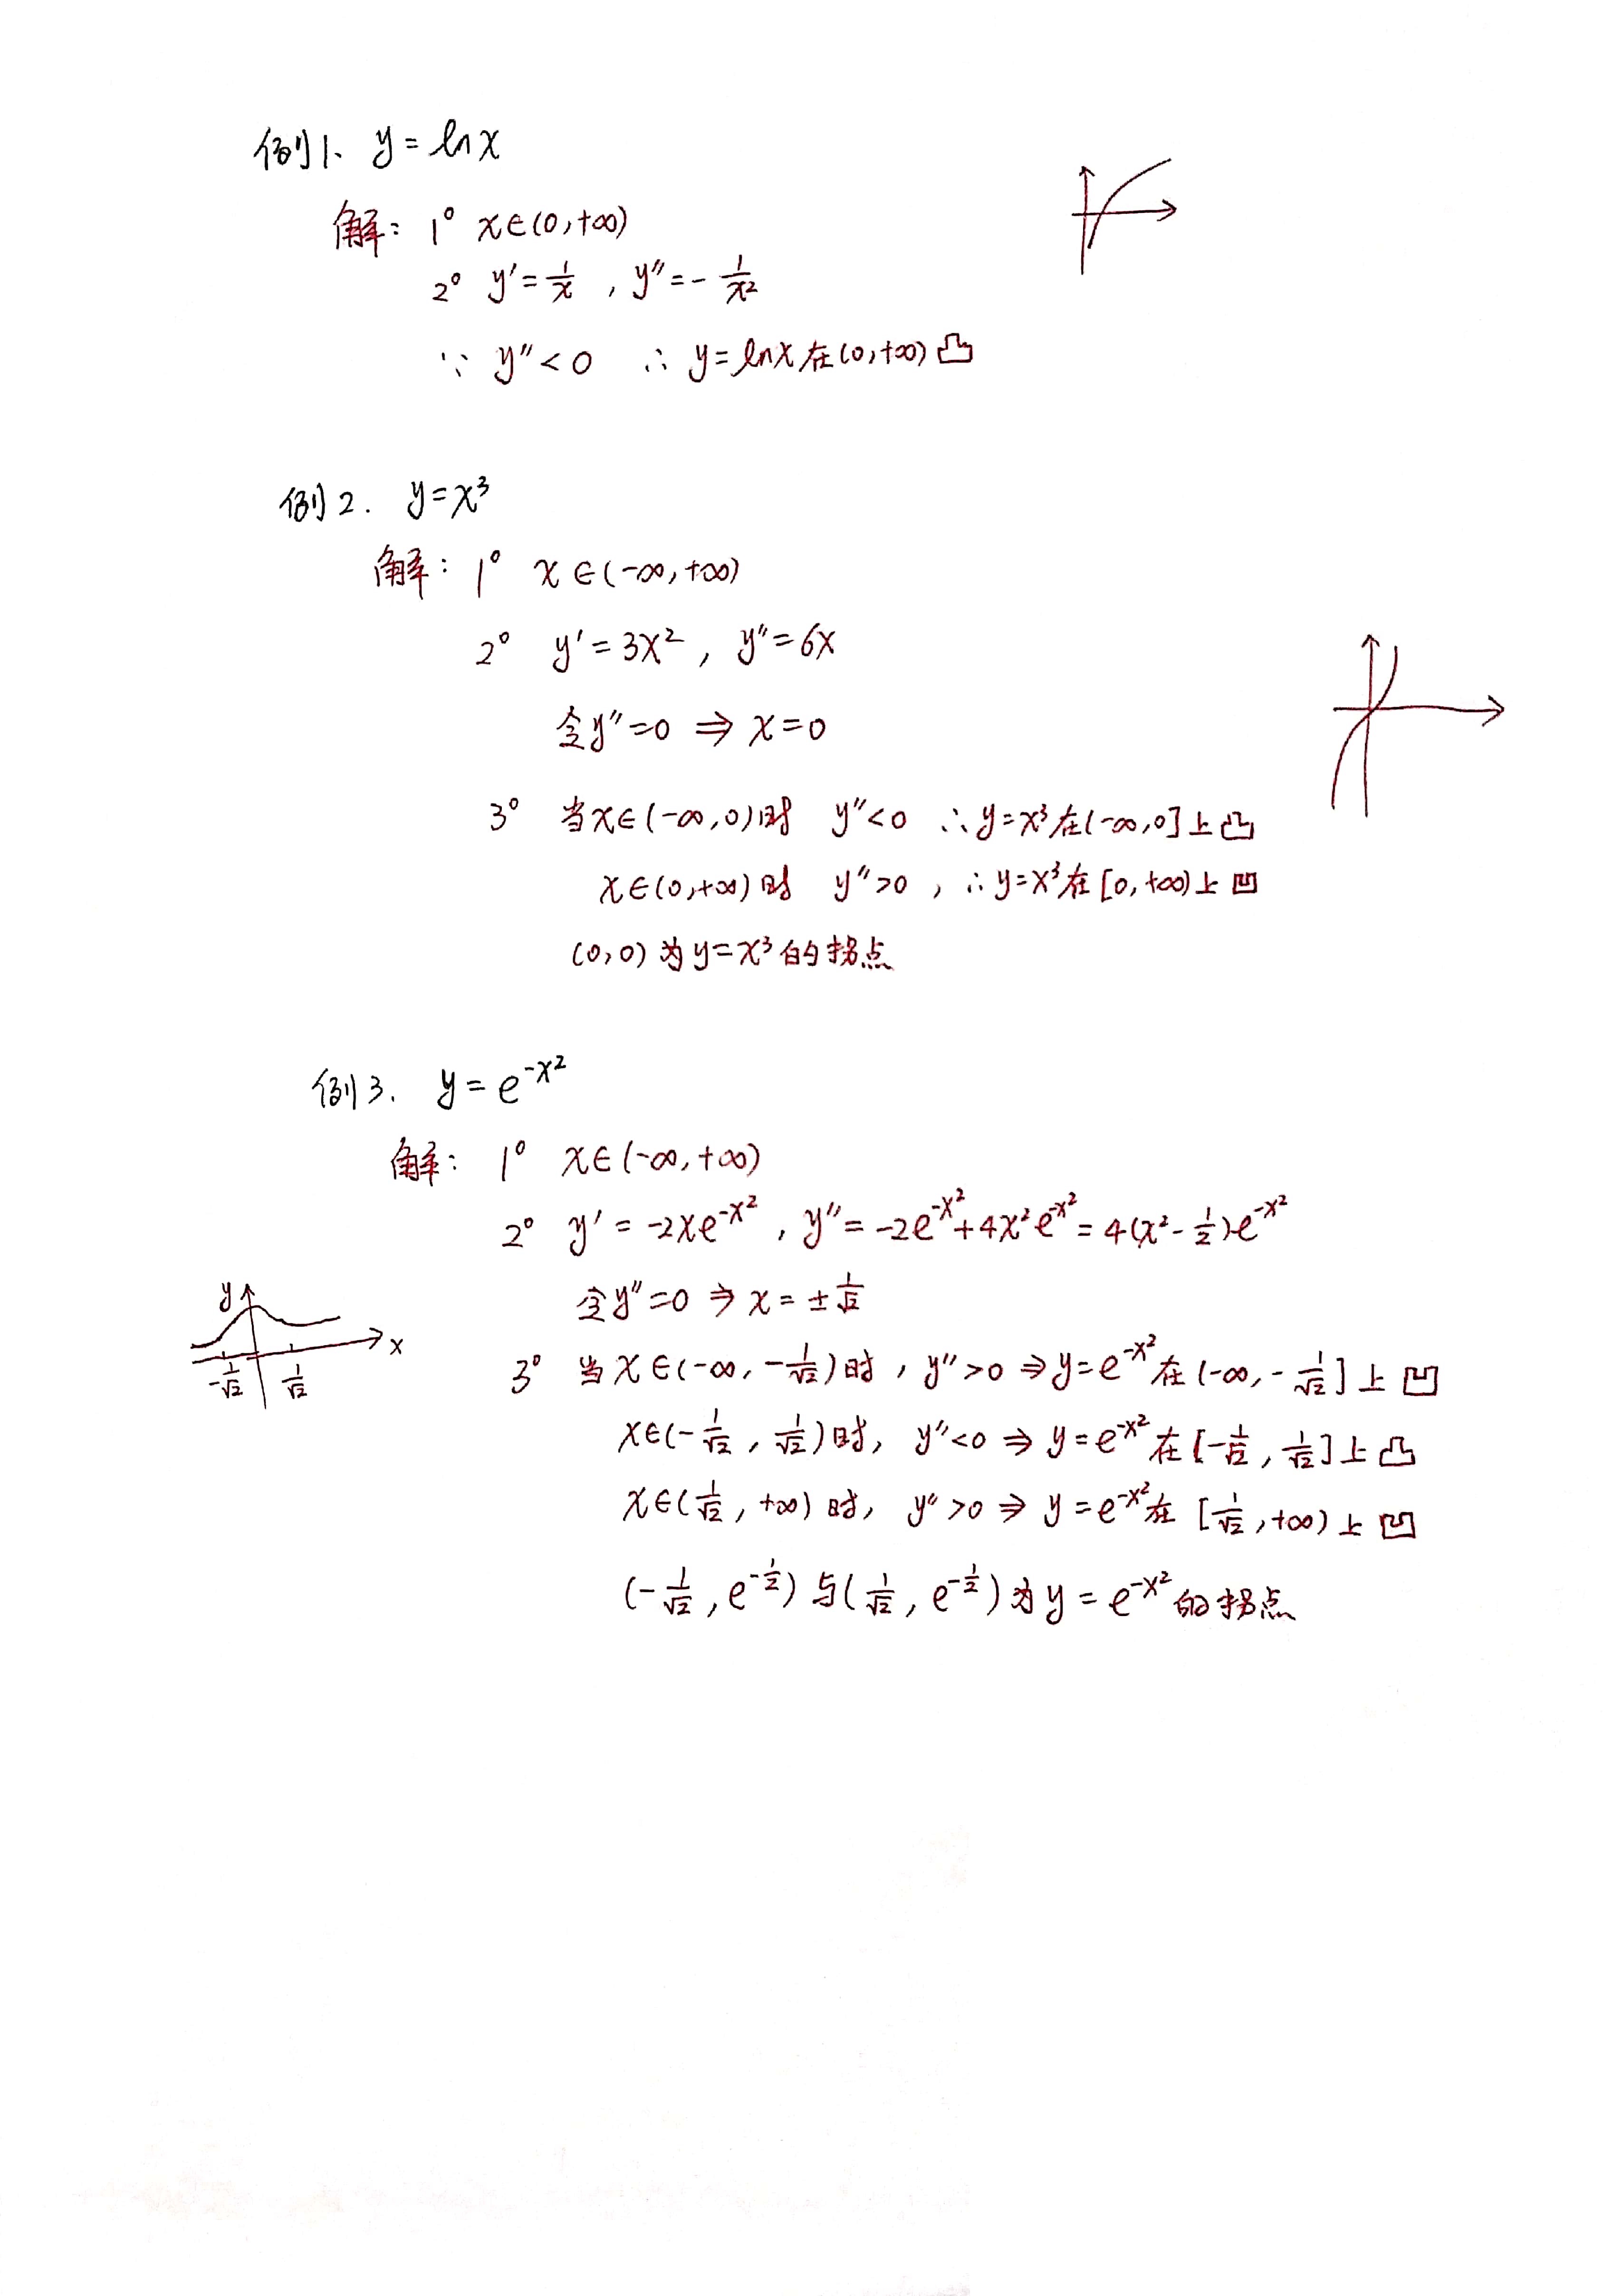 例1、y=lnx
解：1° x∈(0,+∞)
2° y′=1/x ，y″=-1/x²
∵ y″<0 ∴ y=lnx在(0,+∞)凸
例2. y=x³
解：1° x∈(-∞,+∞)
2° y′=3x²，y″=6x
令y″=0 ⇒ x=0
3° 当x∈(-∞,0)时 y″<0 ∴y=x³在(-∞,0]上凸
x∈(0,+∞)时 y″>0，∴y=x³在[0,+∞)上凹
(0,0)为y=x³的拐点
例3. y=e^{-x²}
解：1° x∈(-∞,+∞)
2° y′=-2xe^{-x²}，y″=-2e^{-x²}+4x²e^{-x²}=4(x²-1/2)e^{-x²}
令y″=0 ⇒ x=±1/√2
y
x
-1/√2 1/√2
3° 当x∈(-∞,-1/√2)时，y″>0 ⇒ y=e^{-x²}在(-∞,-1/√2]上凹
x∈(-1/√2,1/√2)时，y″<0 ⇒ y=e^{-x²}在[-1/√2,1/√2]上凸
x∈(1/√2,+∞)时，y″>0 ⇒ y=e^{-x²}在[1/√2,+∞)上凹
(-1/√2,e^{-1/2})与(1/√2,e^{-1/2})为y=e^{-x²}的拐点